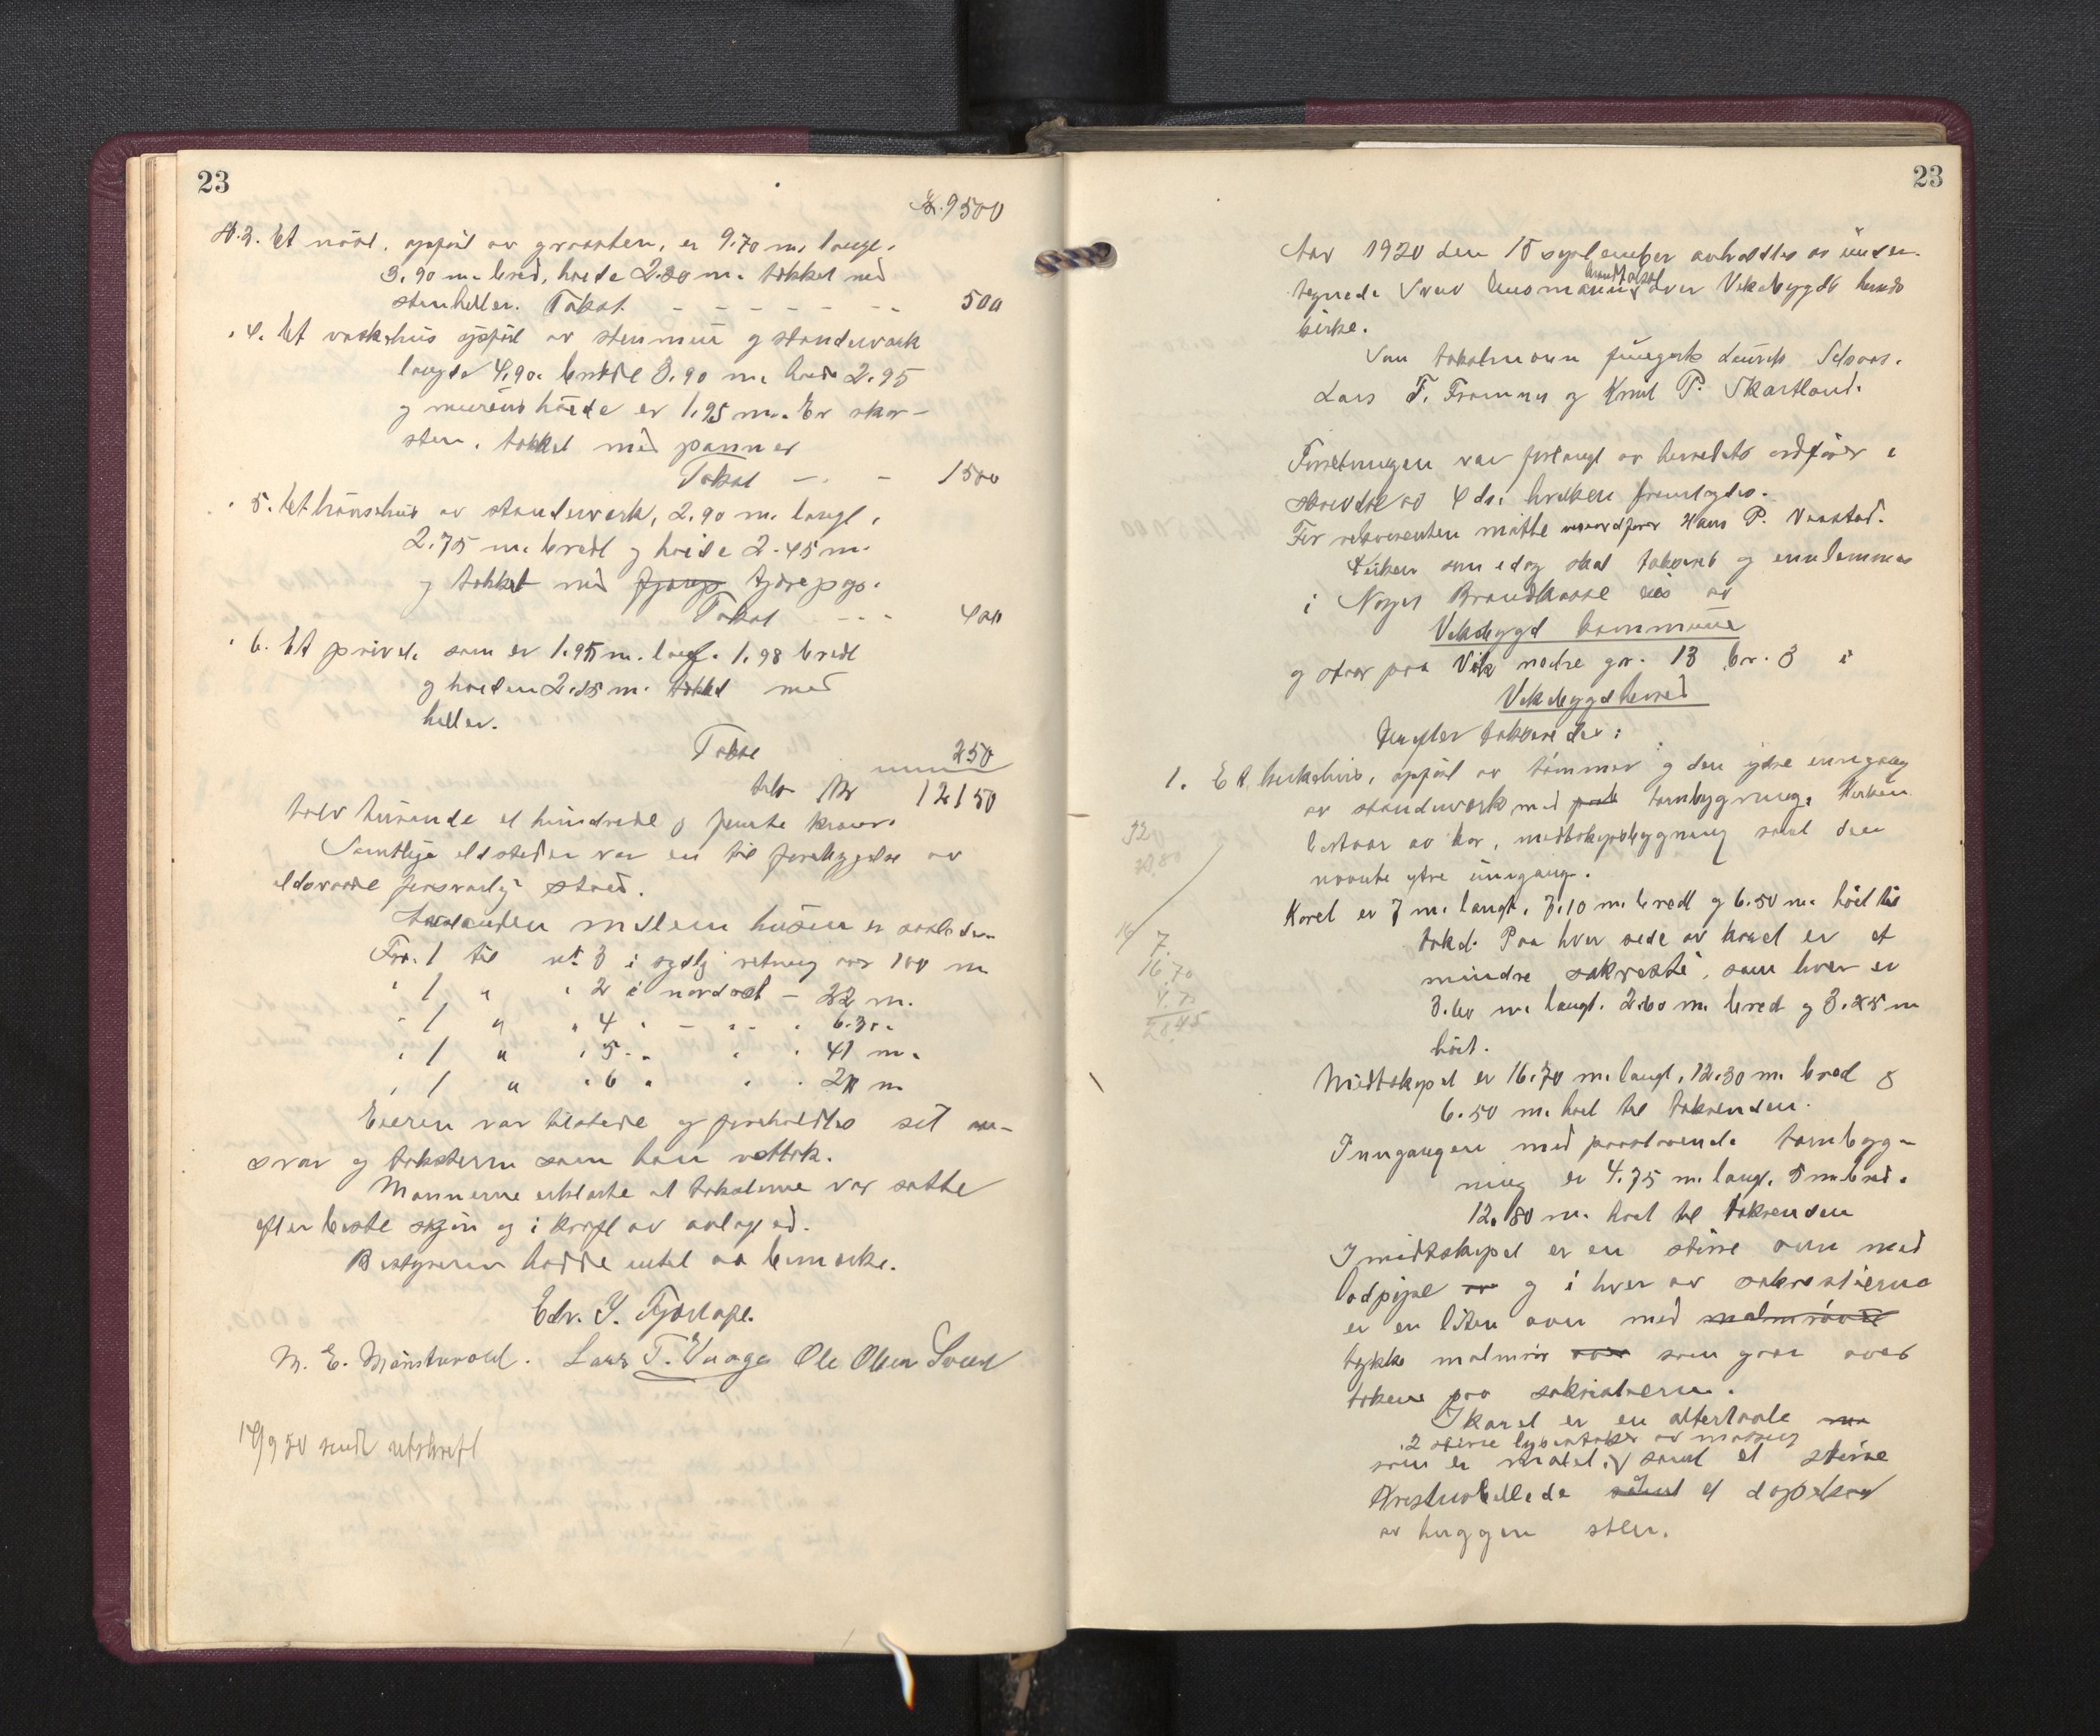 23
Kr. 9500
N. 3. Et nöst, opfört av graasten, er 9.70 m. langt,
3.90 m. bred, høide 2.80 m. tækket med
stenheller. Takst. - - - - - - - 500
" 4. Et vaskehus opfört av stenmur og standerværk
længde 4.90, bredde 3.90 m. høide 2.95
og murens höide er 1.95 m. Er skor-
sten, tækket med panner
Takst - - - 1500
" 5. Et hönsehus av standerverk, 2.90 m. langt,
2.75 m. bredt og høide 2.45 m.
og tækket med tjærepap.
Takst - - - 400
" 6. Et privet som er 1.95 m. langt. 1.98 bredt
og høiden 2.25 m. tækket med
heller.
Takst 250
tils Kr 12150
tolv tusende et hundrede og femti kroner.
Samtlige ildsteder var en til forebyggelse av
ildsvaade forsvarlig stand.
Avstanden mellem husene er saaledes
Fra 1 til nr 3 i sydlig retning over 100 m
" 1 " " 2 i nordost - 22 m.
" 1 " " 4 " - " - " 6.30.
" 1 " " 5 " " " 41 m.
" 1 " " 6 " " " 21 m
Eieren var tilstede og foreholdtes sit an-
svar og taksterne som han vedtok.
Mannerne erklærte at taksterne var satte
efter beste skjön og i kraft av avlagt ed.
Bestyreren hadde intet at bemerke.
Edv. Y. Fjøsne
M. E. Mönstrevold. Lars T. Vaage Ole Olsen Sveen
14/9 50 sendt utskrift
23
Aar 1920 den 15 september avholdtes av under-
tegnede branntakst over Vikebygds herreds
kirke.
Som takstmænn fungerte Lauritz
Lars T. Frammes og Knut P. Skartland.
Forretningen var forlangt av herredets ordförer i
skrivelse av 4 ds. hvilken fremlagdes.
For rekvirenten mötte Hans P. Vaastad.
Kirken som idag skal takseres og indlemmes
i Norges Brandkasse eies av
Vikebygd kommune
og staar paa Vik nedre gnr. 13 br. 3 i
Vikebygd herred
Derefter takseredes:
1. Et kirkehus, opfört av tömmer og den ydre inngang
av standerverk med taarnbygning. Kirken
bestaar av kor, midtskipsbygning samt den
nævnte ytre inngang.
Koret er 7 m. langt, 7.10 m. bredt og 6.50 m. höit til
taket. Paa hver side av koret er et
mindre sakresti, som hver er
3.60 m. langt. 2.60 m. bred og 3.25 m
höit.
Midtskipet er 16.70 m. langt, 12.30 m. bred og
6.50 m. höit til takrenden.
Inngangen med paastaaende taarnbyg-
ning er 4.75 m. lang. 5 m. bred.
12.80 m. höit til takrenden
I midtskipet er en störe ovn med
og i hver av sakrestierne
er en liten ovn med malmröret
tykke malmrör som gaar over
taket paa sakristierne.
I koret er en altertavle
2 störe lysestaker av messing
som er malet, samt et störe
Kristusbillede samt et döpekar
av huggen sten.
16.70